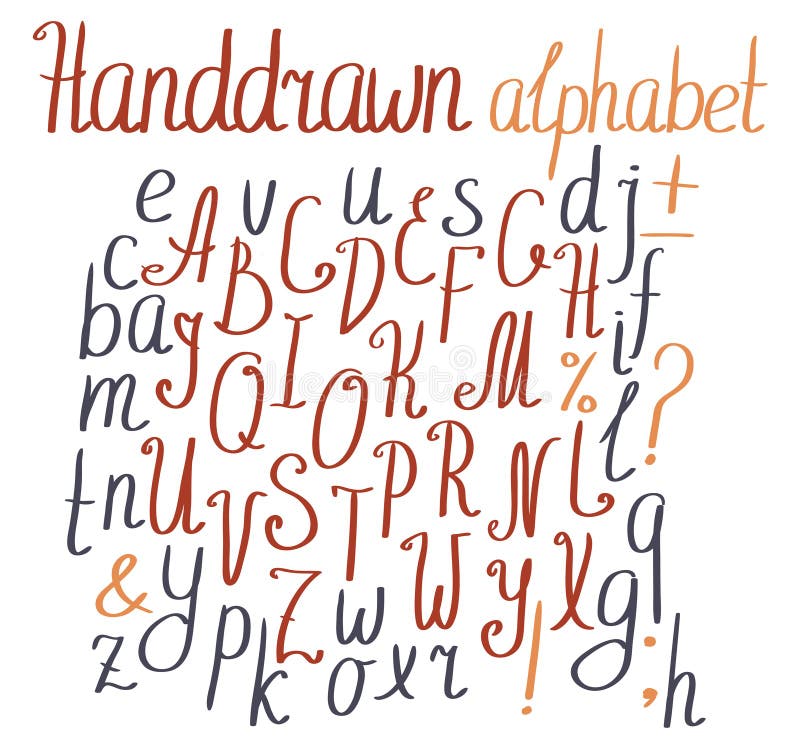 Handdrawn alphabet
e v u s d j ±
c A B C D E F G H f
b a J I K M i
m Q O % l ?
t n U V S T P R N L q
& y Z W Y X g
z p k w o x r ! ; h